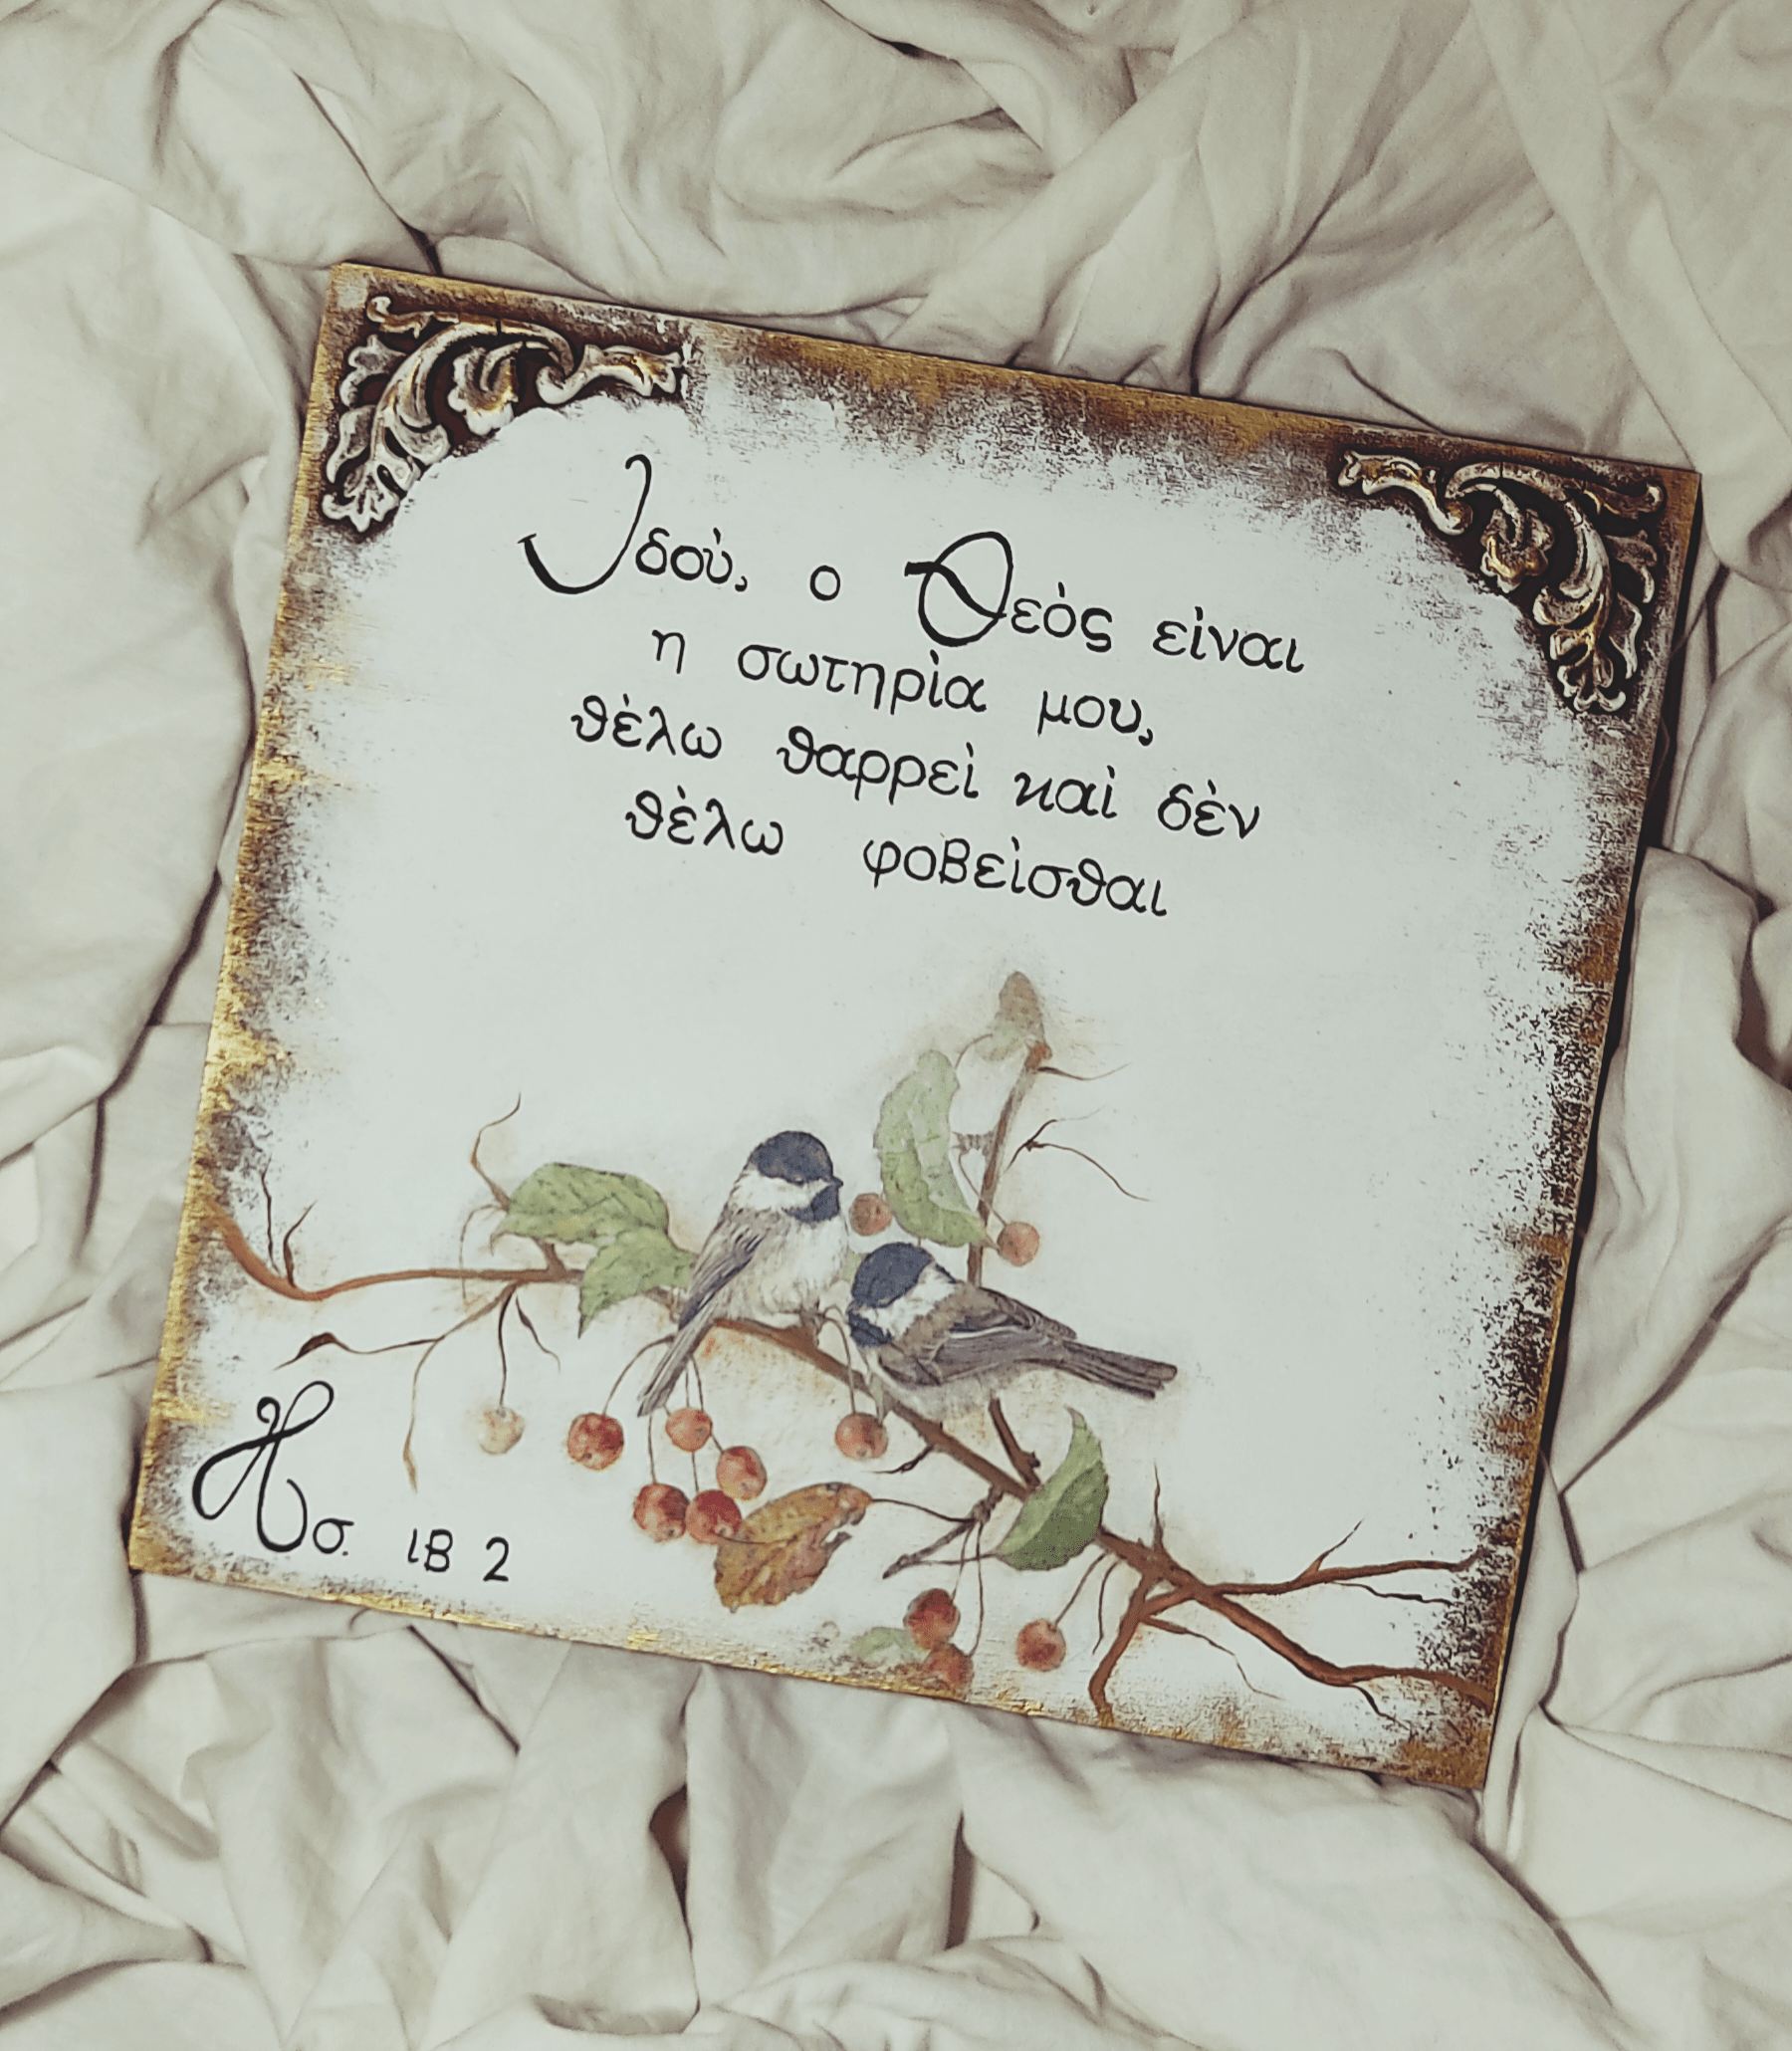 Ιδού, ο Θεός είναι
η σωτηρία μου,
θέλω θαρρεί καί δέν
θέλω φοβείσθαι
Ησ. ιβ 2